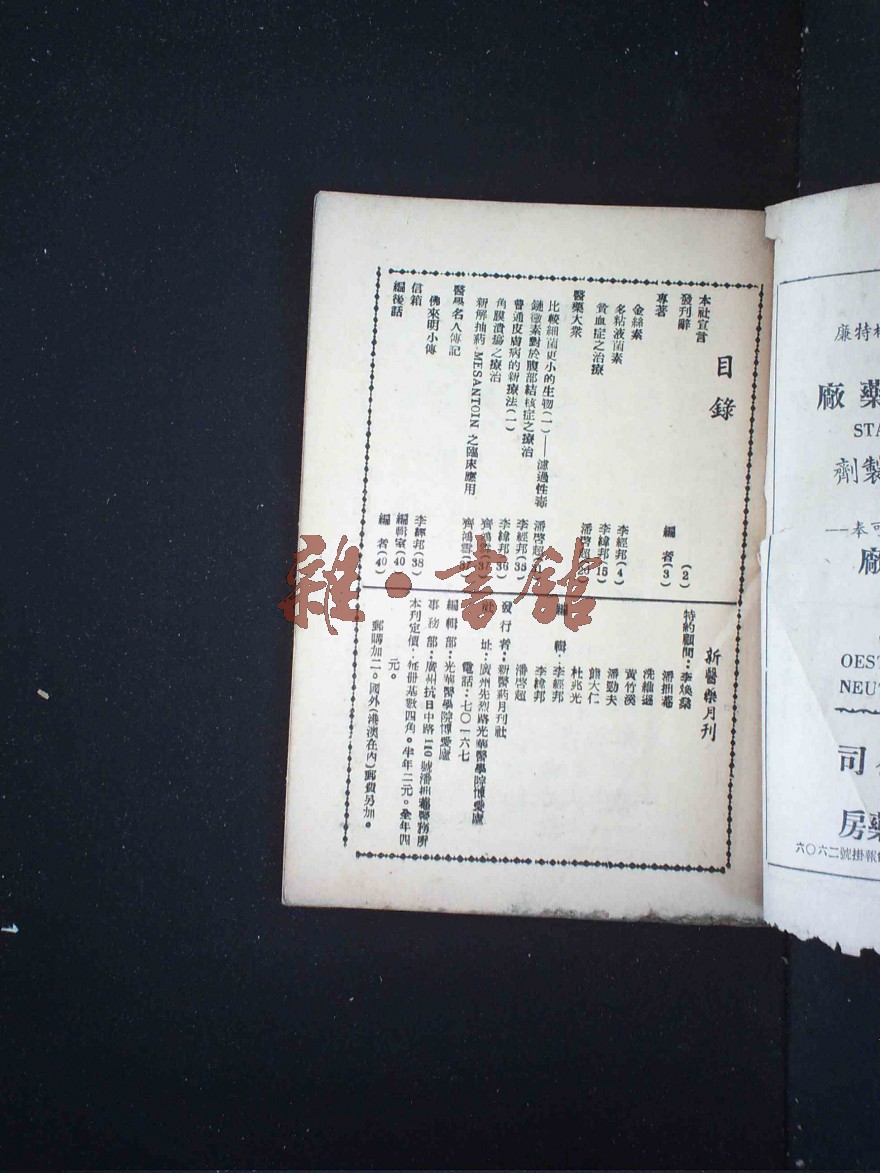 目錄
本社宣言 (2)
發刊辭 編者(3)
專著
金絲素 李經邦(4)
多粘液菌素 李緯邦(15)
貧血症之治療 潘啓超
醫藥大衆
比較細菌更小的生物(一)——濾過性毒 潘啓超
鏈黴素對於腹部結核症之療治 李經邦
普通皮膚病的新療法(一) 李緯邦(36)
角膜潰瘍之療治 齊鴻雲
新解抽葯-MESANTOIN 之臨床應用 齊鴻雲
醫學名人傳記
佛來明小傳 李緯邦(38)
信箱 編輯室(40)
編後話 編者(40)
新醫藥月刊
特約顧問:李煥燊
潘拙菴
洗維遜
黃竹溪
潘勁夫
熊大仁
杜兆光
編輯:李經邦
李緯邦
潘啓超
發行者:新醫葯月刊社
社址:廣州先烈路光華醫學院博愛廬
電話:七〇一六七
編輯部:光華醫學院博愛廬
事務部:廣州抗日中路110號潘拙菴醫務所
本刊定價:每冊基數四角。半年二元。全年四
元。
郵購加二。國外(港澳在內)郵費另加。
藥廠
STA
製劑
廠
OEST
NEUT
司
藥房
六〇六二號掛報
雜·書館